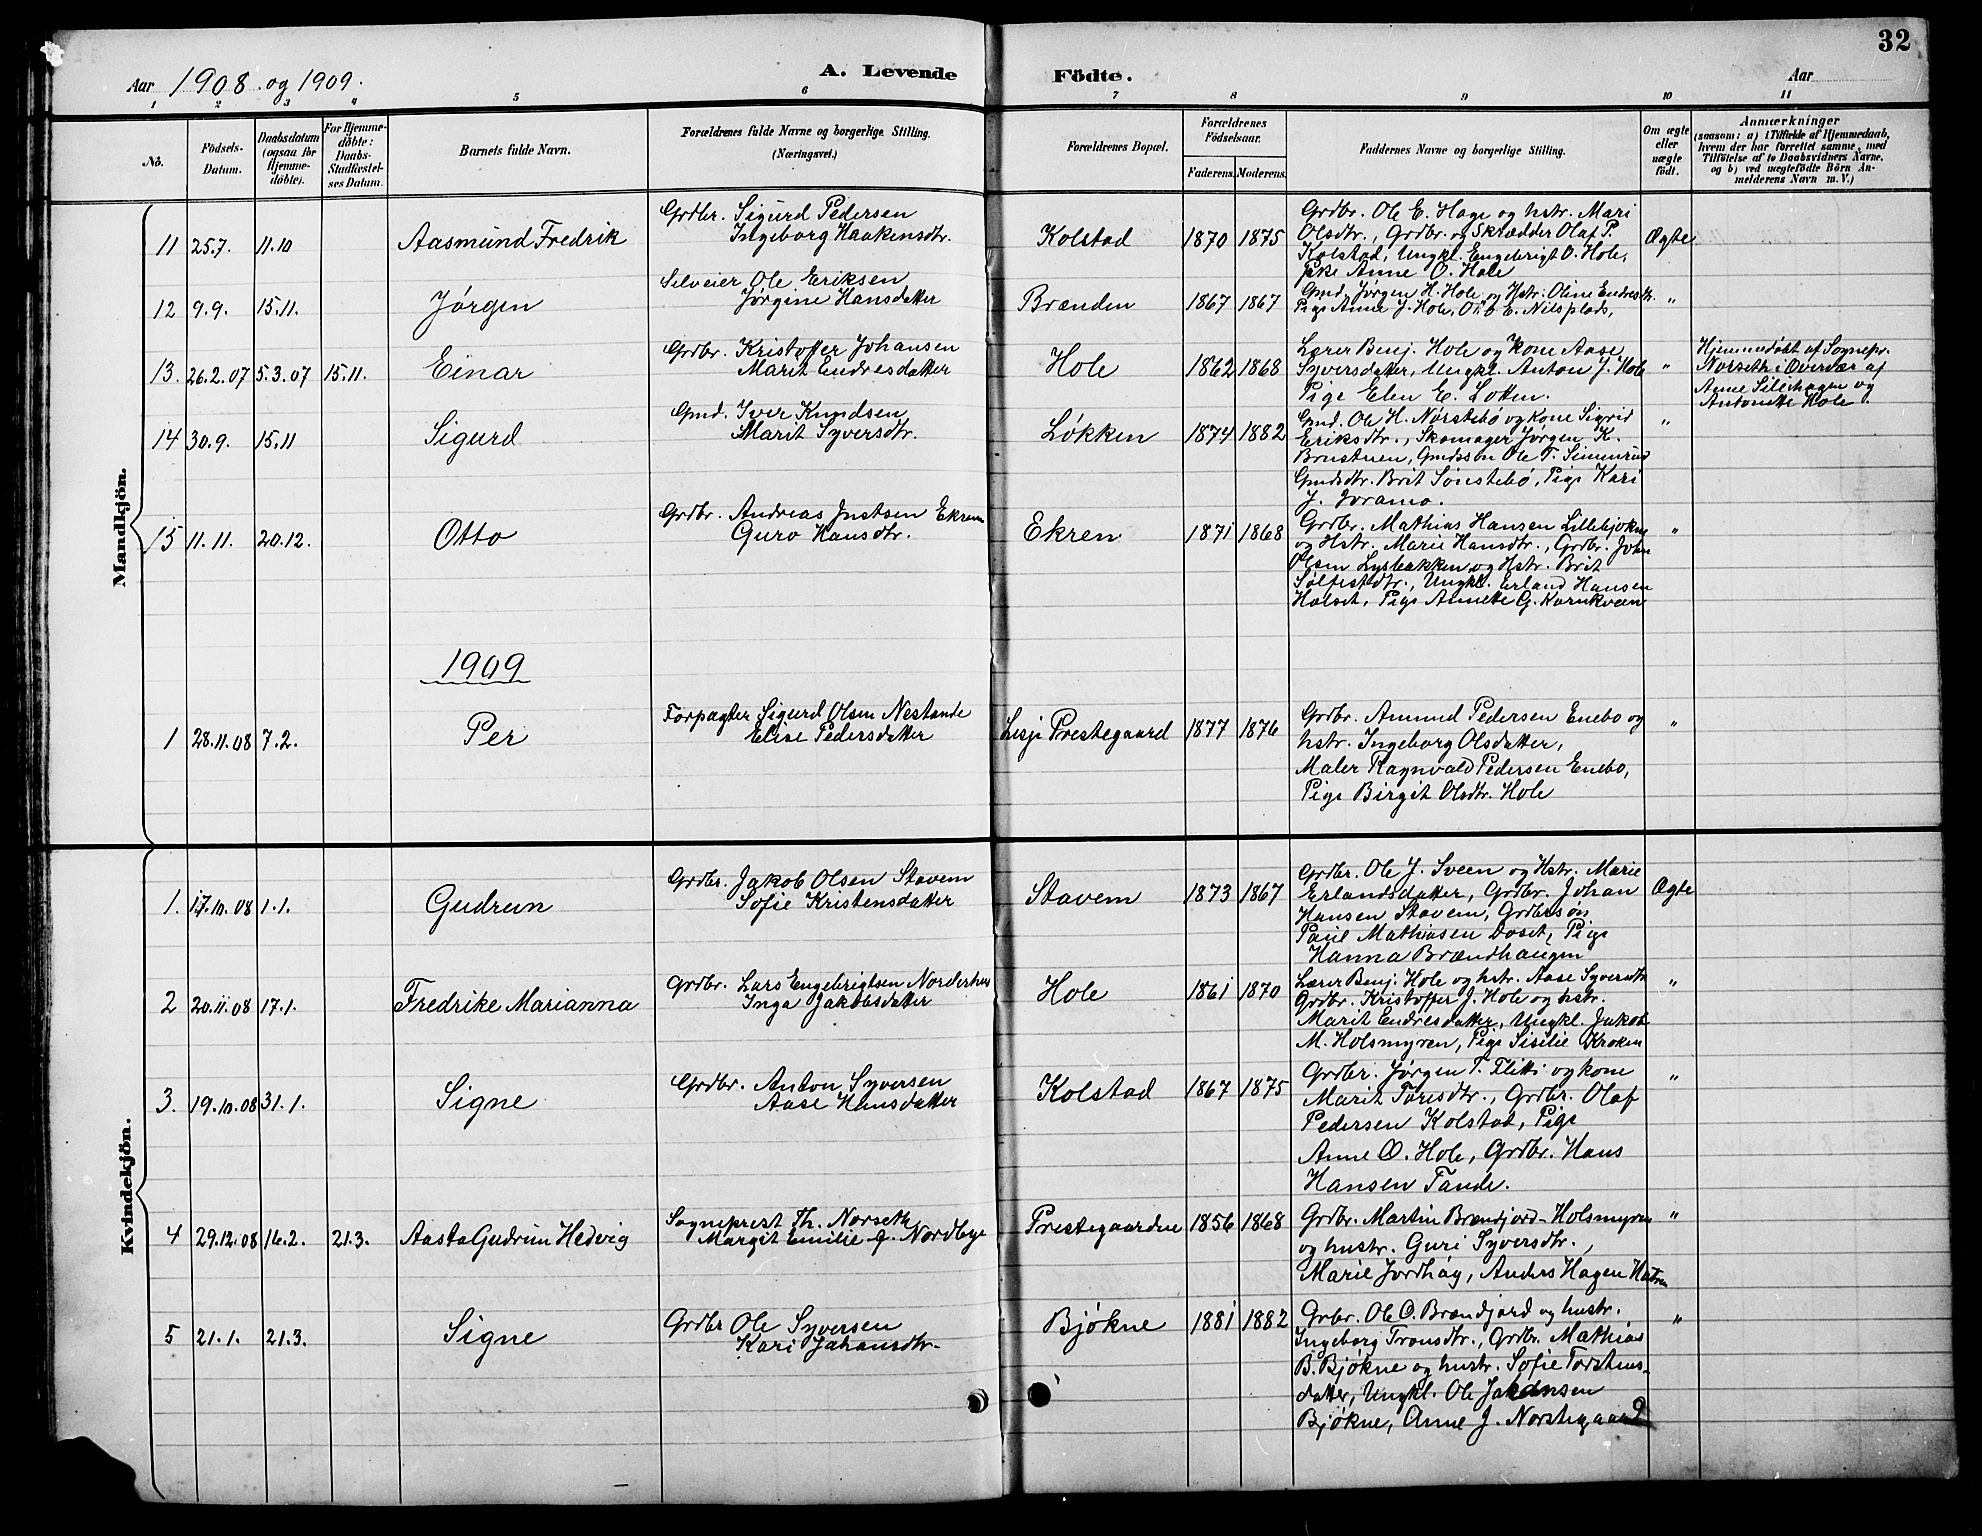 32
Aar 1908 og 1909.
A. Levende Födte.
Aar
1 2 3 4 5 6 7 8 9 10 11
No.
Födsels-Datum.
Daabsdatum (ogsaa for Hjemme-döbte).
For Hjemme-döbte: Daabs-Stadfæstel-ses Datum.
Barnets fulde Navn.
Forældrenes fulde Navne og borgerlige Stilling.
(Næringsvei.)
Forældrenes Bopæl.
Forældrenes Födselsaar.
Faderens. Moderens.
Faddernes Navne og borgerlige Stilling.
Om ægte eller uægte födt.
Anmærkninger
(saasom: a) i Tilfælde af Hjemmedaab,
hvem der har forrettet samme, med
Tilföielse af to Daabsvidners Navne,
og b) ved uægtefödte Börn An-
melderens Navn m. V.)
Mandkjön.
11 25.7. 11.10 Aasmund Fredrik
Grdbr. Sigurd Pedersen
Ingeborg Haakensdtr.
Kolstad 1870 1875
Grdbr. Ole E. Hage og hstr. Mari
Olsdtr., Grdbr. og Skrædder Olaf P.
Kolstad, Ungkl. Engebrigt O. Hole,
Pike Anne O. Hole
Ægte
12 9.9. 15.11. Jørgen
Selveier Ole Eriksen
Jørgine Hansdatter
Brænden 1867 1867
Gmd. Jørgen H. Hole og Hstr. Oline Endresdtr.
Pige Anne J. Hole, E. Nilsplads,
"
13. 26.2.07 5.3.07 15.11. Einar
Grdbr. Kristoffer Johansen
Marit Endresdatter
Hole 1862 1868
Lærer Benj. Hole og kone Aase
Syversdatter, Ungkl. Anton J. Hole
Pige Elen E. Lotten.
"
Hjemmedöbt af Sognepr.
Norseth i Overvær af
Anne Silihagen og
Antonette Hole.
14 30.9. 15.11 Sigurd
Gmd. Iver Knudsen
Marit Syversdtr.
Løkken 1874 1882
Gmd. Ole H. Nørstebö og kone Sigrid
Eriksdtr., Skomager Jørgen K.
Brustuen, Gmdssön Ole T. Simenrud
Gmdsdtr. Brit Sönstebö, Pige Kari
J. Joramo.
"
15 11.11. 20.12. Otto
Grdbr. Andreas Justsen Ekren
Guro Hansdtr.
Ekren 1871 1868
Grdbr. Mathias Hansen Lillebjøkne
og Hstr. Marie Hansdtr., Grdbr. John
Olsen Lysbakken og Hstr. Brit
Sølfestdtr., Ungkl. Erland Hansen
Holset, Pige Annette G. Kornkveen
"
1909
1 28.11.08 7.2. Per
Forpagter Sigurd Olsen Nestande
Elise Pedersdatter
Lesje Prestegaard 1877 1876
Grdbr. Amund Pedersen Enebo og
hstr. Ingeborg Olsdatter,
Maler Ragnvald Pedersen Enebo,
Pige Birgit Olsdtr. Hole
"
Kvindekjön.
1. 17.10.08 1.1. Gudrun
Grdbr. Jakob Olsen Stavem
Sofie Kristensdatter
Stavem 1873 1867
Grdbr. Ole J. Sveen og Hstr. Marie
Erlandsdatter, Grdbr. Johan
Hansen Stavem, Grdbrsön
Paul Mathiasen Doset, Pige
Hanna Brændhaugen
Ægte
2 20.11.08 17.1. Fredrike Marianna
Grdbr. Lars Engebrigtsen Norderhus
Inga Jakobsdatter
Hole 1861 1870
Lærer Benj. Hole og hstr. Aase Syversdtr.
Grdbr. Kristoffer J. Hole og hstr.
Marit Endresdatter, Ungkl. Jakob
M. Holsmyren, Pige Sisilie Kroken
"
3. 19.10.08 31.1. Signe
Grdbr. Anton Syversen
Aase Hansdatter
Kolstad 1867 1875
Grdbr. Jørgen T. Flitti og kone
Marit Toresdtr., Grdbr. Olaf
Pedersen Kolstad, Pige
Anne O. Hole, Grdbr. Hans
Hansen Tande.
"
4 29.12.08 16.2. 21.3. Aasta Gudrun Hedvig
Sogneprest Th. Norseth
Margit Emilie f. Nordbye
Prestegaarden 1856 1868
Grdbr. Martin Brændjord-Holsmyren
og hustr. Guri Syversdtr.,
Marie Jordhøy, Anders Hagen
"
5 21.1. 21.3. Signe
Grdbr Ole Syversen
Kari Johansdtr.
Bjøkne 1881 1882
Grbr. Ole O. Brændjord og hustr.
Ingeborg Tronsdtr., Grdbr. Mathias
B. Bjøkne og hustr. Sofie Torstens-
datter, Ungkl. Ole Johansen
Bjøkne, Anne J. Norstegaard
"